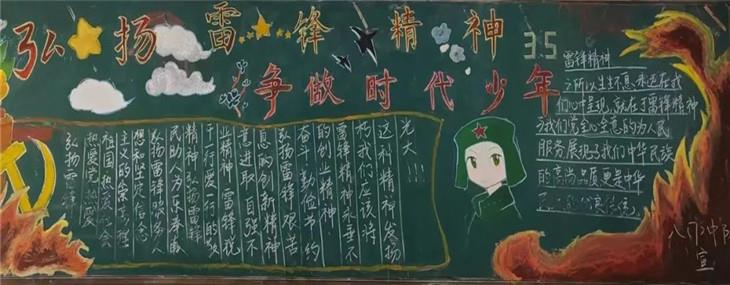 弘扬雷锋精神
争做时代少年
3.5
弘扬雷锋
热爱党热爱
祖国热爱社会
主义的崇高理
想和坚定信念
弘扬雷锋服务人
民助人为乐奉献
精神弘扬雷锋
干一行爱一行的敬
业精神 雷锋锐
意进取 自强不
息的创新精神
弘扬雷锋艰苦
奋斗勤俭节约
的创业精神
雷锋精神永垂不
朽我们应该将
这种精神发扬
光大!!!
雷锋精神
之所以生生不息永远在我
们心中呈现,就在于雷锋精神
为我们党全心全意的为人民
服务展现了我们中华民族
的高尚品质更是中华
宣